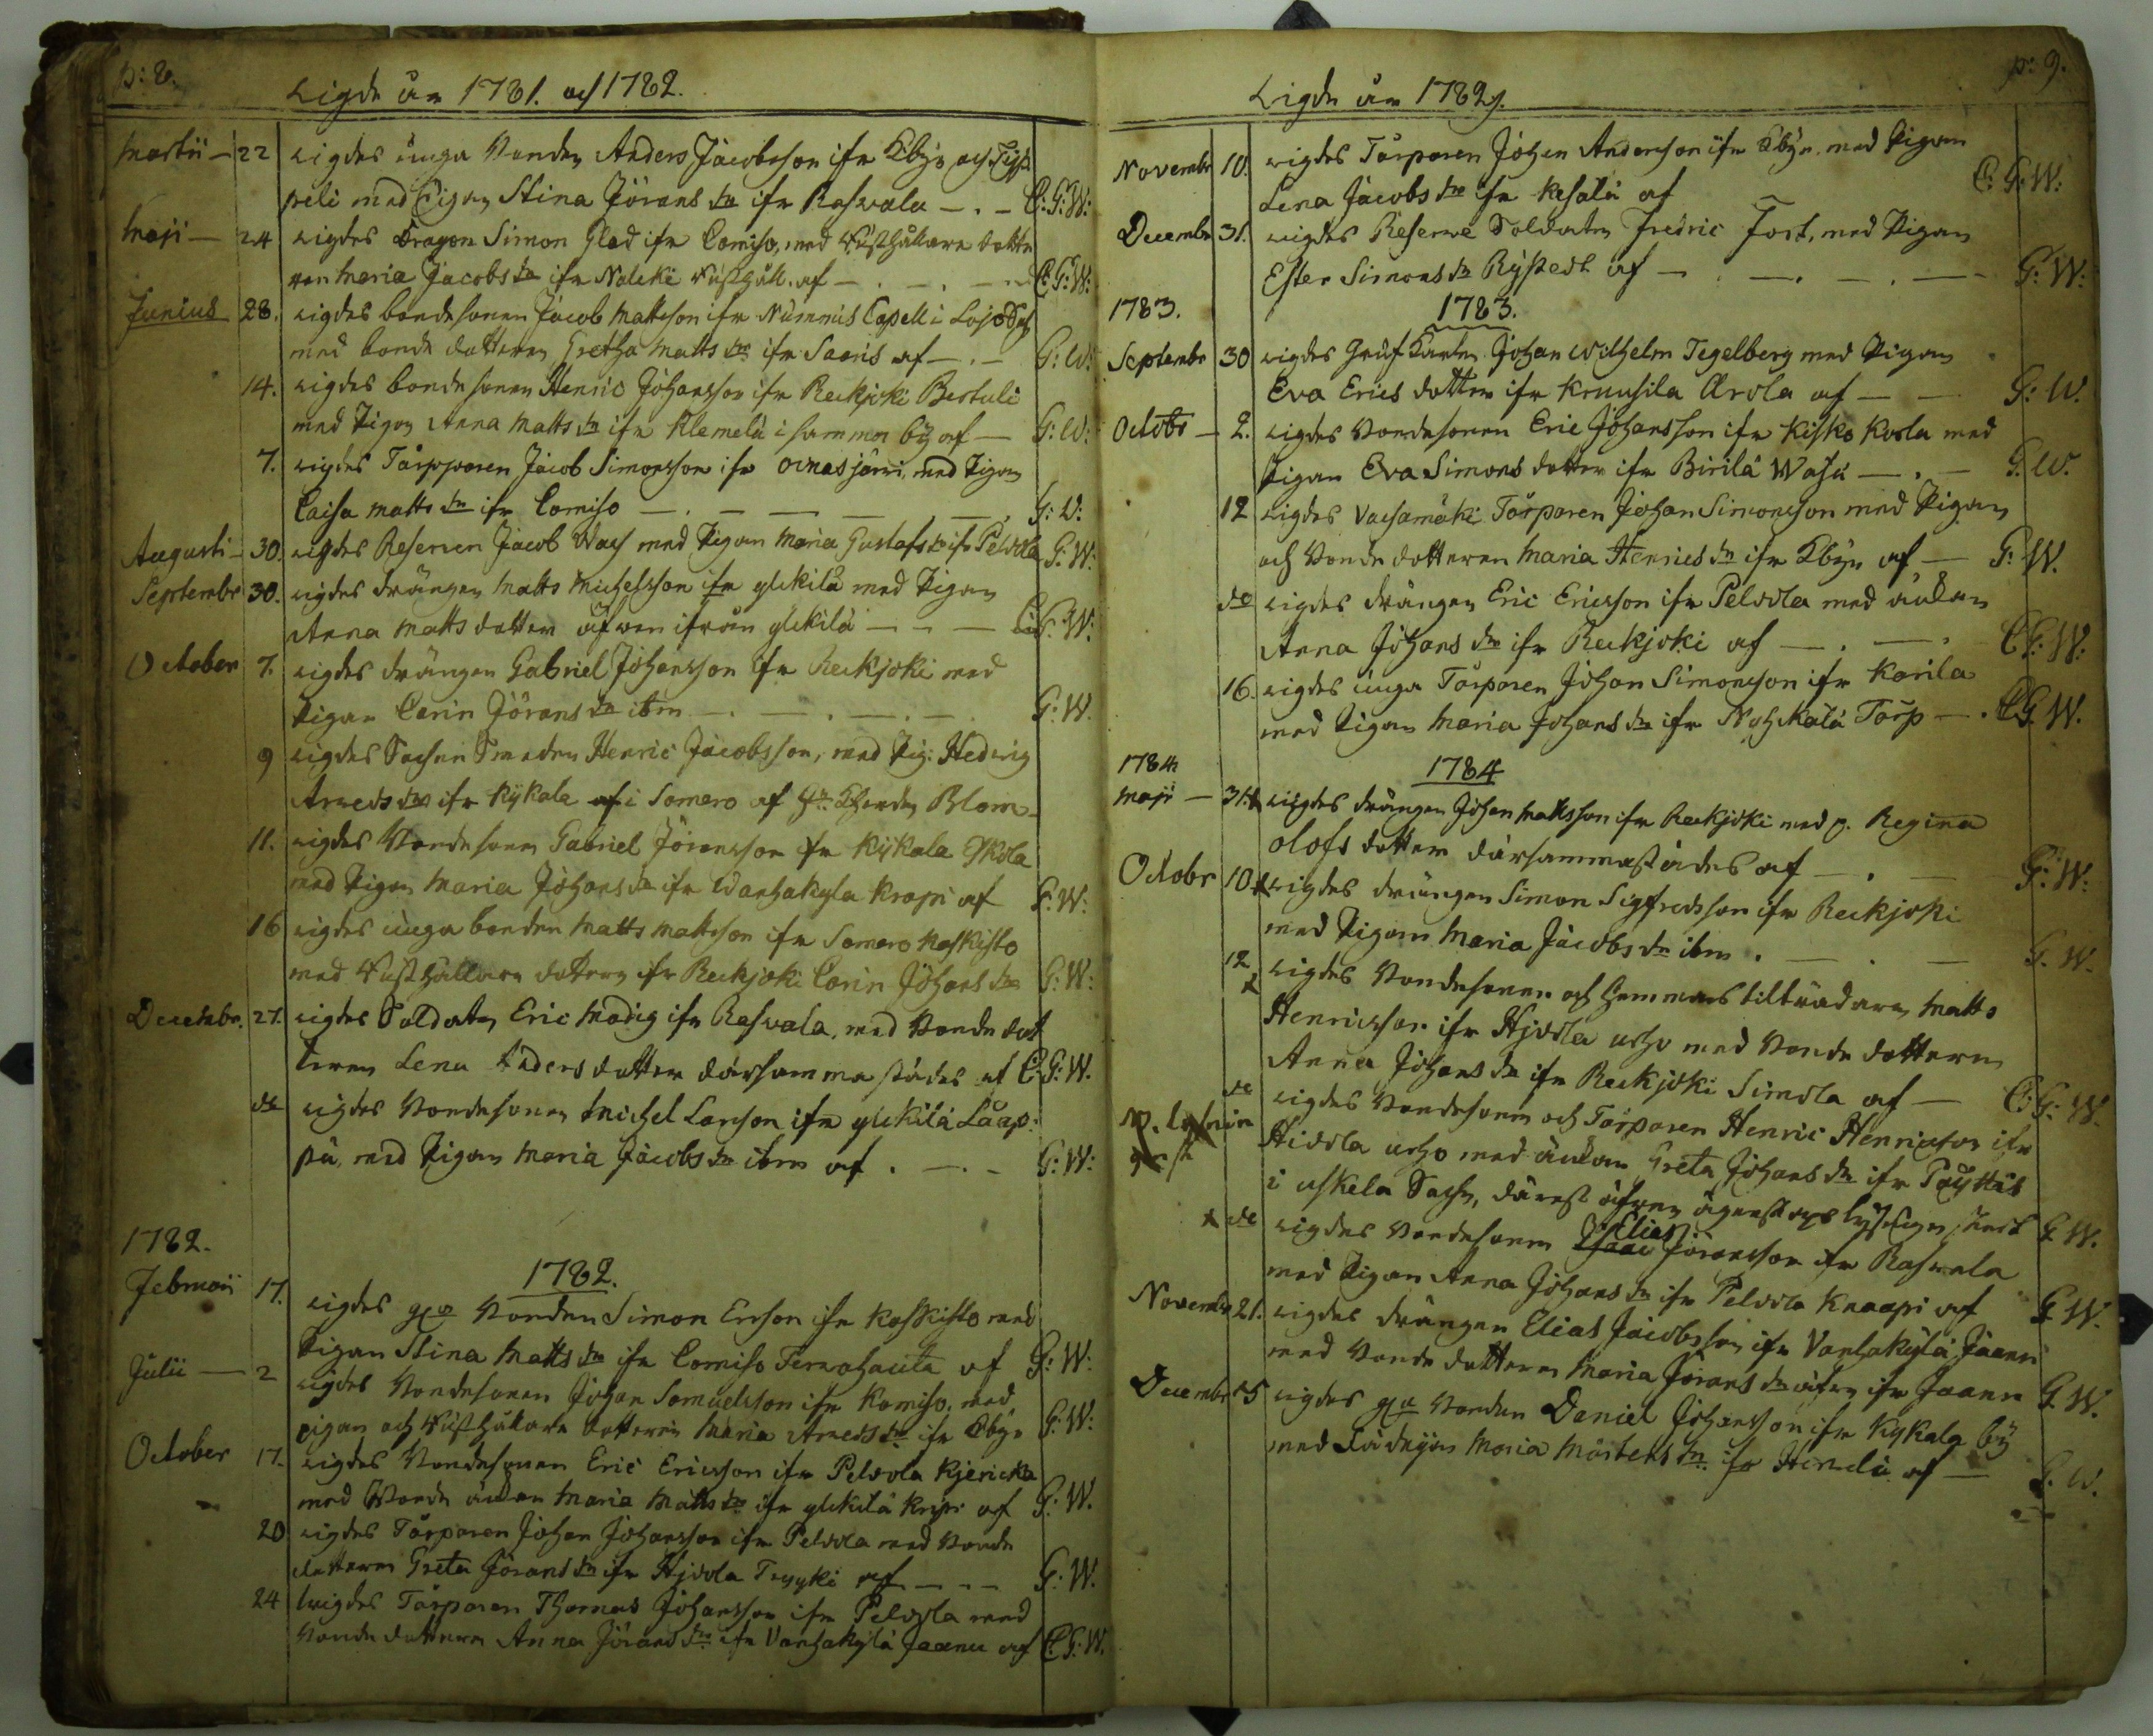 p: 8.
Vigde år 1781. och 1782.
Martii — 22 Vigdes unga Bonden Anders Jacobsson ifr Kbÿn och
peli med Pigan Stina Jörans dr ifr Rasvala — . — C: G: W:
Maji — 24 Vigdes Dragon Simon Glad ifr Lomiso, med Rusthållare dotte
ren Maria Jacobs dr ifr Naleki Rusthåll. af — . — . — C: G: W:
Junius 28. Vigdes bondesonen Jacob Mattsson ifr Nummis Capell i Lojo
med bonde dotteren Gretha Matts dr ifr Saaris af — . — G: W:
14. Vigdes bondesonen Henric Johansson ifr Reckjoki Bertuli
med Pigan Anna Matts dr ifr Klemelä i samma bÿ af — G: W:
7. Vigdes Torpparen Jacob Simonsson ifr Oinasjärvi, med Pigan
Caisa Matts dr ifr Lomiso — . — — — — . G: W:
Augusti — 30. Vigdes Reserven Jacob Wass med Pigan Maria Gustafs dr ifr Peldola G: W:
Septembr 30. Vigdes drängen Matts Michelsson ifr ylikilä med Pigan
Anna Matts dotter äfven ifrån ylikilä — — — C: G: W:
October 7. Vigdes drängen Gabriel Johansson ifr Reckjoki med
Pigan Carin Jörans dr ibm — . — . — . — G: W.
9 Vigdes Sochne Smeden Henric Jacobsson, med Pig: Hedvig
Arveds dr ifr Kÿkala i Somero af Hr Blom
11. Vigdes Bondesonen Gabriel Jöransson ifr Kÿkala
med Pigan Maria Johans dr ifr Wanhakÿla Krapi af G: W:
16 Vigdes unga bonden Matts Mattsson ifr Somero Kaskisto
med Rusthållare dotteren ifr Reckjoki Carin Johans dr G: W:
Decembr. 27. Vigdes Soldaten Eric Modig ifr Rasvala, med Bonde dot
teren Lena Anders dotter därsammastädes af C: G: W.
do Vigdes Bondesonen Michel Larsson ifr ylikilä Laap:
pa, med Pigan Maria Jacobs dr ibm af . — . — G: W:
1782.
1782.
Februarii 17. Vigdes Bonden Simon Ersson ifr Kaskisto med
Pigan Stina Matts dr ifr Lomiso Ternahauta af G: W:
Julii — 2 Vigdes Bondesonen Johan Samuelsson ifr Komiso, med
pigan och Rusthållare dotteren Maria Arveds dr ifr Kbÿn G: W:
October 17. Vigdes Bondesonen Eric Ericsson ifr Peldola
med Bonde änkan Maria Matts dr ifr ylikilä Kripi af G: W.
20 Vigdes Torparen Johan Johansson ifr Peldola med Bonde
dotteren Greta Jörans dr ifr Hjdola af — — — G: W.
24 Vigdes Torparen Thomas Johansson ifr Peldola med
Bonde dotteren Anna Jörans dr ifr Vanhakÿlä Jaanu af C. G: W.
p: 9.
Vigde år 1782.
Novembr 10. Vigdes Torparen Johan Andersson ifr Kbÿn. med Pigan
Lena Jacobs dr ifr Kesälä af C: G: W:
Decembr 31. Vigdes Reserve Soldaten Fredric Fort, med Pigan
Ester Simons dr af — . — . — . — G: W:
1783.
1783.
Septembr 30 Vigdes Johan Wilhelm Tegelberg med Pigan
Eva Erics dotter ifr Kruusila Arola af — — G: W.
Octobr — 2. Vigdes Bondesonen Eric Johansson ifr Kisko Korla med
Pigan Eva Simons dotter ifr Birilä — . — G. W.
12 Vigdes Vaisamäki Torparen Johan Simonsson med Pigan
och Bonde dotteren Maria Henrics dr ifr Kbÿn af — G: W.
do Vigdes drängen Eric Ericsson ifr Peldola med änkan
Anna Johans dr ifr Reckjoki af — . — . C G: W:
16. Vigdes unga Torparen Johan Simonsson ifr Karila
med Pigan Maria Johans dr ifr Torp — . C G. W.
1784.
1784
Maji — 31. Vigdes drängen Johan Mattsson ifr Reckjoki med p. Regina
Olofs dotter därsammastädes af — . — G: W:
Octobr 10 Vigdes drängen Simon Sigfredsson ifr Reckjoki
med Pigan Maria Jacobs dr ibm . — . — G. W.
12 Vigdes Bondesonen och Hemmans tillträdaren Matts
Henricsson ifr Hjdola urho med Bonde dotteren
Anna Johans dr ifr Reckjoki Simola af — C: G: W.
do Vigdes Bondesonen och Torparen Henric Henricsson ifr
Hidola urho med änkan Greta Johans dr ifr Paÿttis
i uskela Sochn, G. W.
do Vigdes Bondesonen Elias Jöransson ifr Rasvala
med Pigan Anna Johans dr ifr Peldola Knaapi af G. W.
Novembr 21. Vigdes drängen Elias Jacobsson ifr Vanhakÿlä Jaanu
med Bonde dotteren Maria Jörans dr äfven ifr Jaanu G. W.
Decembr 5 Vigdes Bonden Daniel Johansson ifr Kÿkala bÿ
med Maria Mårtens dr ifr af — G. W.